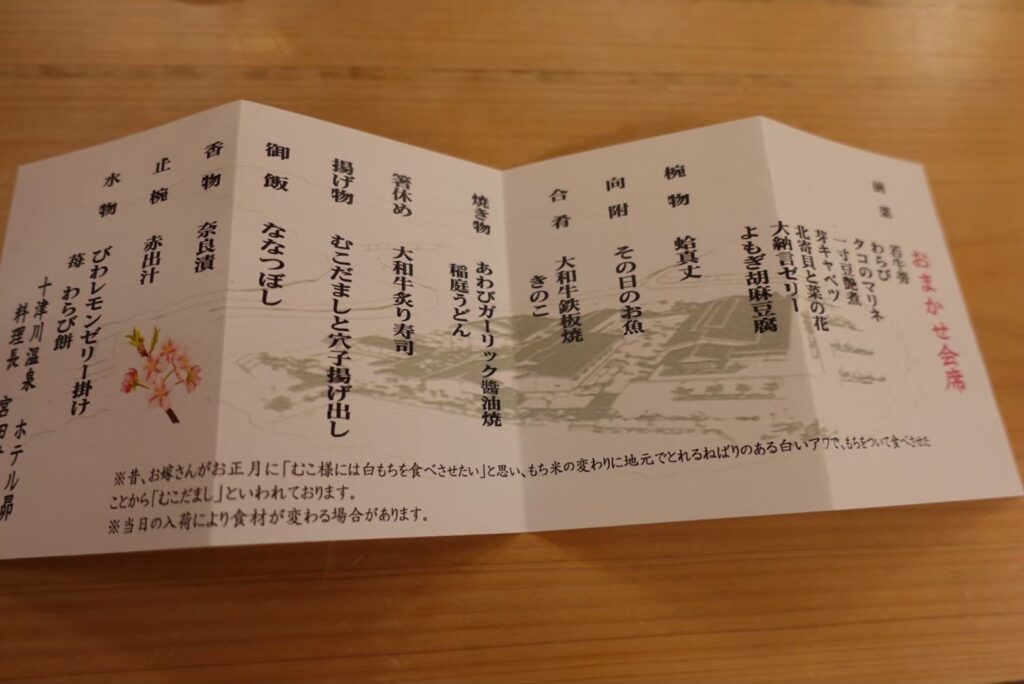 おまかせ会席
前菜
若牛蒡
わらび
タコのマリネ
一寸豆艶煮
芽キャベツ
北寄貝と菜の花
大納言ゼリー
よもぎ胡麻豆腐
椀物 蛤真丈
向附 その日のお魚
合肴 大和牛鉄板焼
きのこ
焼き物 あわびガーリック醬油焼
稲庭うどん
箸休め 大和牛炙り寿司
揚げ物 むこだましと穴子揚げ出し
御飯 ななつぼし
香物 奈良漬
止椀 赤出汁
水物 びわレモンゼリー掛け
苺 わらび餅
十津川温泉 ホテル昴
料理長 宮田
※昔、お嫁さんがお正月に「むこ様には白もちを食べさせたい」と思い、もち米の変わりに地元でとれるねばりのある白いアワで、もちをついて食べさせた
ことから「むこだまし」といわれております。
※当日の入荷により食材が変わる場合があります。